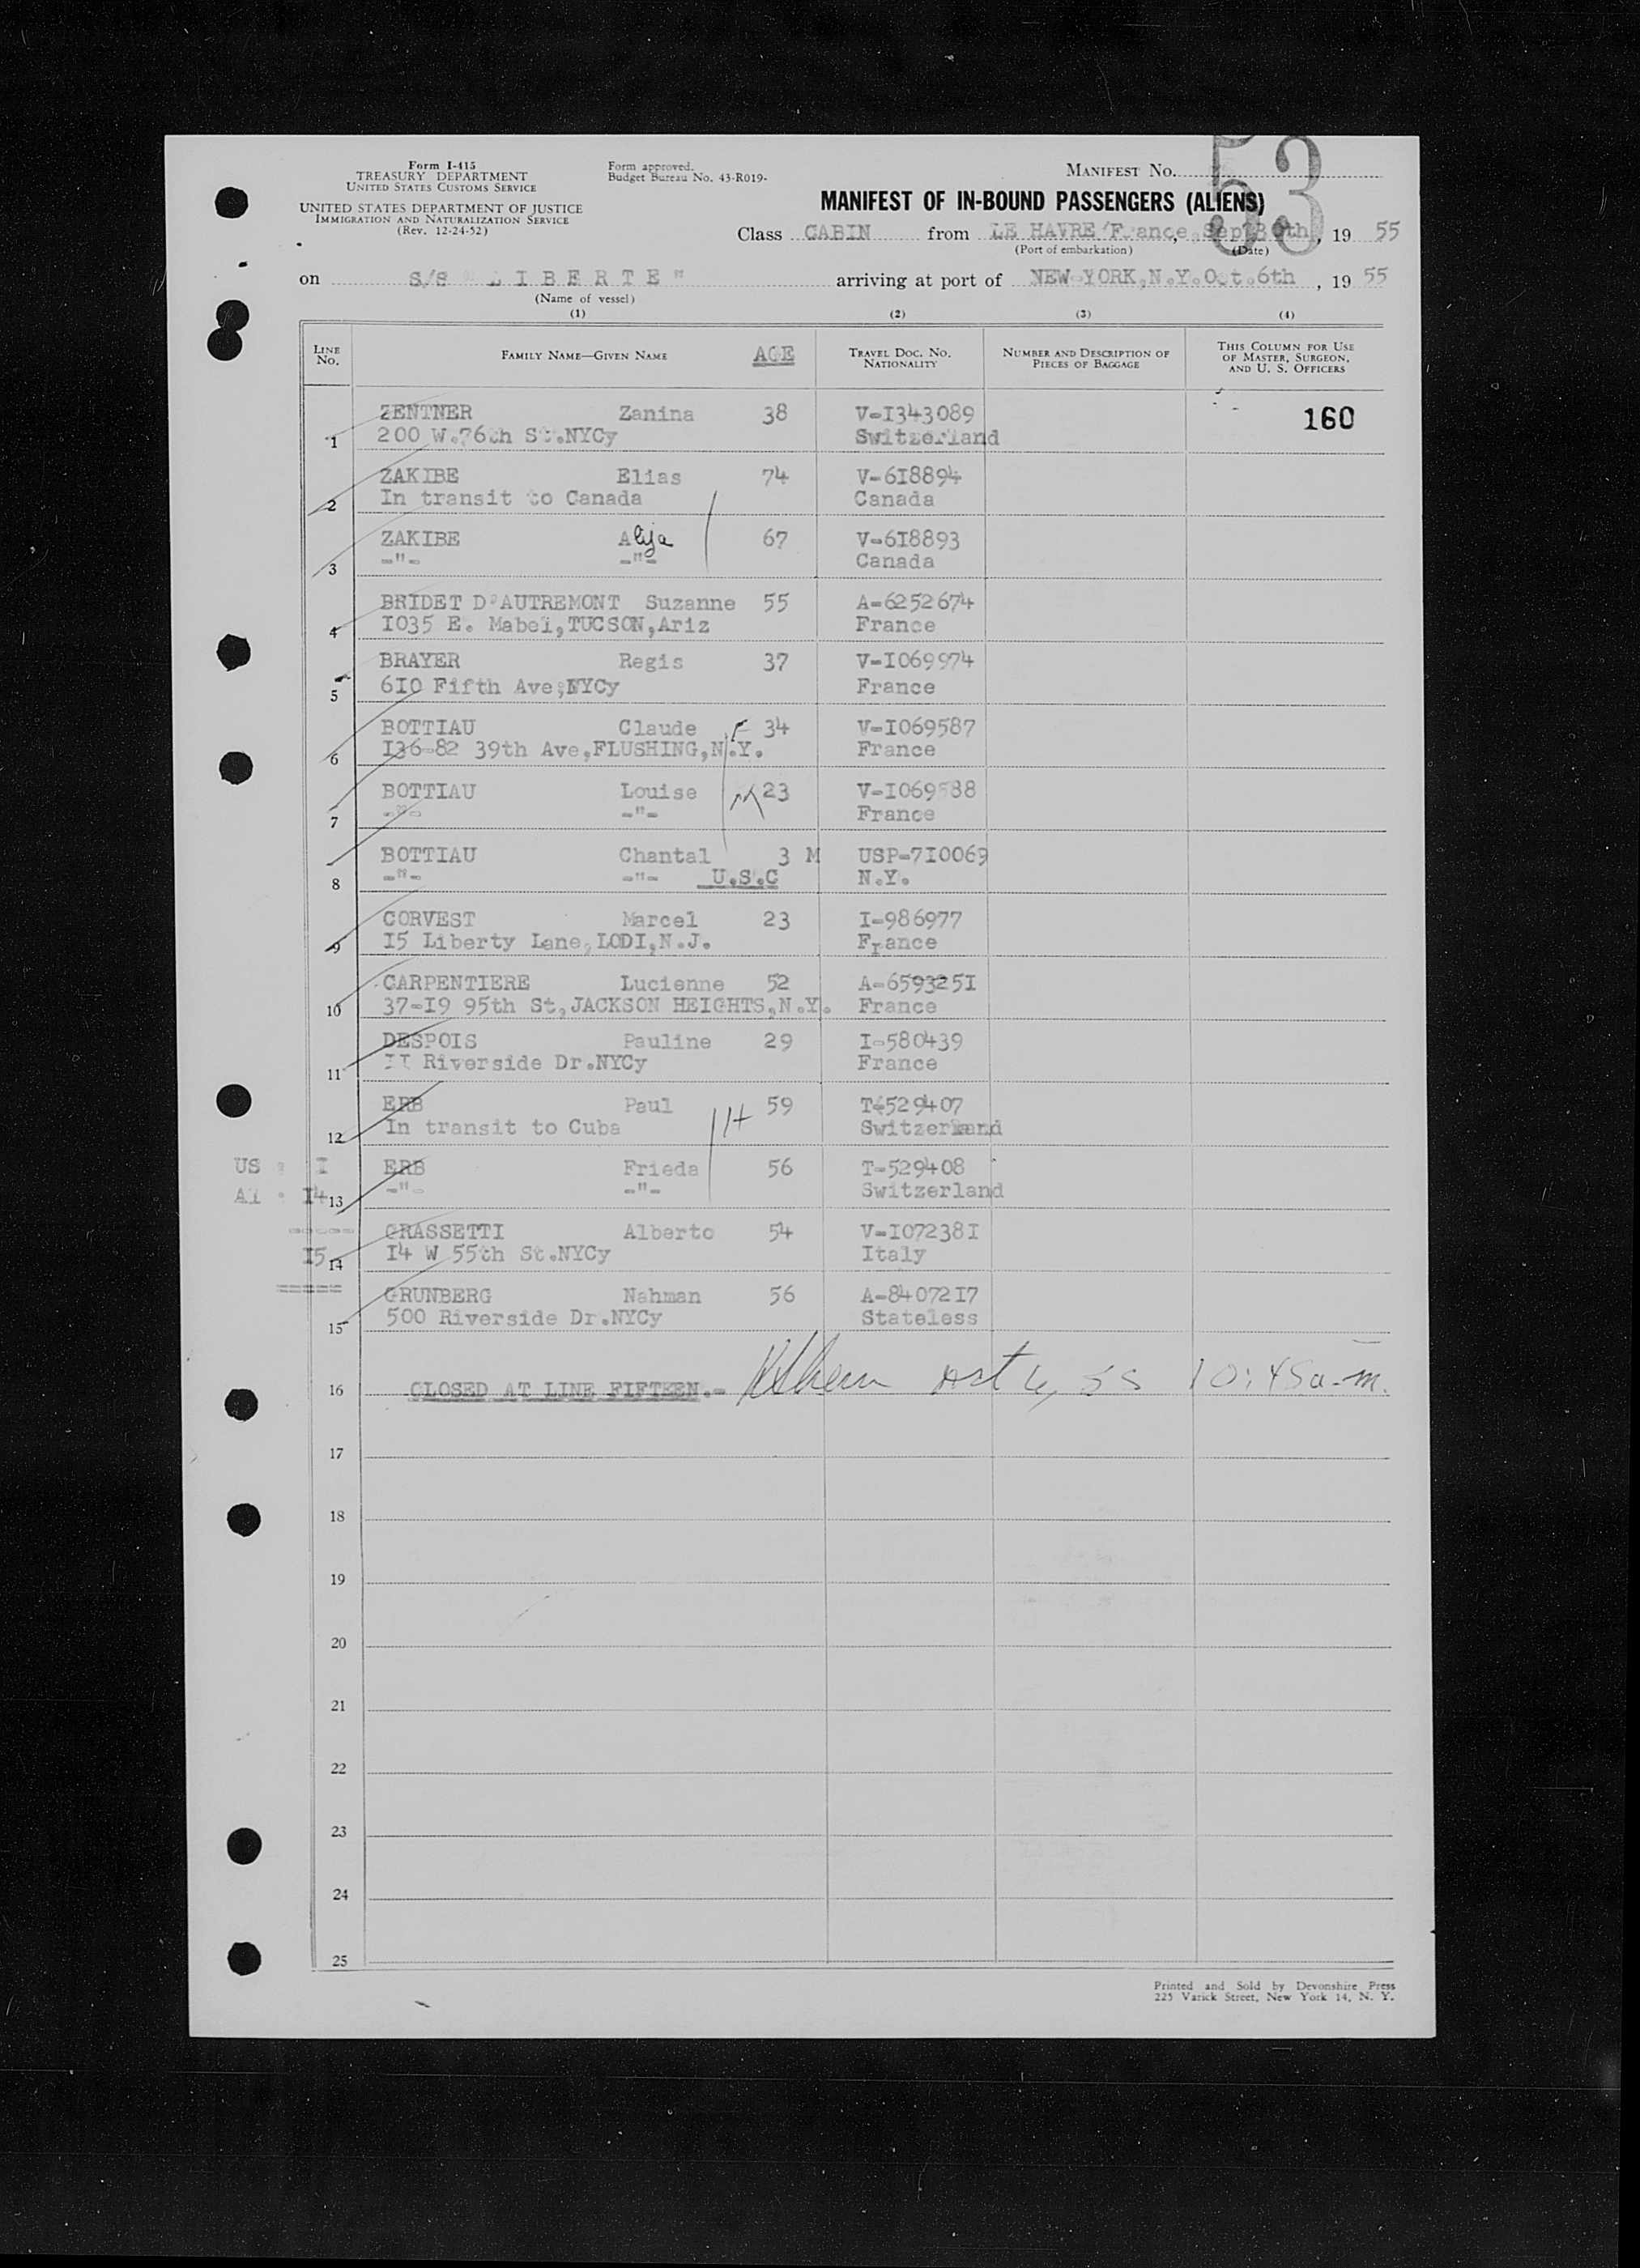 Form I-415
TREASURY DEPARTMENT
UNITED STATES CUSTOMS SERVICE
UNITED STATES DEPARTMENT OF JUSTICE
IMMIGRATION AND NATURALIZATION SERVICE
(Rev. 12-24-52)
Form approved.
Budget Bureau No. 43-R019-
MANIFEST NO.
53
MANIFEST OF IN-BOUND PASSENGERS (ALIENS)
Class CABIN from LE HAVRE France, Sept30th, 19 55
(Port of embarkation) (Date)
on S/S "LIBERTE" arriving at port of NEW-YORK,N.Y.Oct.6th , 19 55
(Name of vessel)
(1) (2) (3) (4)
LINE NO. FAMILY NAME—GIVEN NAME AGE TRAVEL DOC. NO. NATIONALITY NUMBER AND DESCRIPTION OF PIECES OF BAGGAGE THIS COLUMN FOR USE OF MASTER, SURGEON, AND U. S. OFFICERS
ZENTNER Zanina 38 V-I343089 160
1 200 W.76th St.NYCy Switzerland
ZAKIBE Elias 74 V-6I8894
2 In transit to Canada Canada
ZAKIBE Alija 67 V-6I8893
3 -"- -"- Canada
BRIDET D'AUTREMONT Suzanne 55 A-6252674
4 I035 E. Mabel,TUCSON,Ariz France
BRAYER Regis 37 V-I069974
5 6I0 Fifth Ave,NYCy France
BOTTIAU Claude F 34 V-I069587
6 I36-82 39th Ave,FLUSHING,N.Y. France
BOTTIAU Louise M 23 V-I069588
7 -"- -"- France
BOTTIAU Chantal 3 M USP-7I0069
8 -"- -"- U.S.C N.Y.
CORVEST Marcel 23 I-986977
9 I5 Liberty Lane,LODI,N.J. France
CARPENTIERE Lucienne 52 A-659325I
10 37-I9 95th St,JACKSON HEIGHTS,N.Y. France
DESPOIS Pauline 29 I-580439
11 II Riverside Dr.NYCy France
ERB Paul 59 T-529407
12 In transit to Cuba Switzerland
US : I ERB Frieda 56 T-529408
AI : I4 13 -"- -"- Switzerland
GRASSETTI Alberto 54 V-I07238I
I5 14 I4 W 55th St.NYCy Italy
GRUNBERG Nahman 56 A-84072I7
15 500 Riverside Dr.NYCy Stateless
16 CLOSED AT LINE FIFTEEN.- Oct 6, 55 10:45 a.m.
17
18
19
20
21
22
23
24
25
Printed and Sold by Devonshire Press
225 Varick Street, New York 14, N. Y.